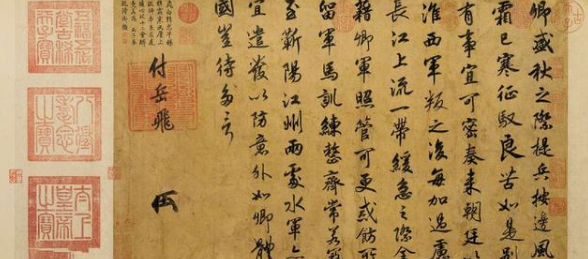 卿盛秋之際提兵按邊風
霜已寒征馭良苦如是別
有事宜可密奏來朝廷以
淮西軍叛之後每加過慮
長江上流一帶緩急之際全
藉卿軍照管可更戒飭所
留軍馬訓練整齊常若
至蘄陽江州兩處水軍亦
宜遣發以防意外如卿體
國豈待多言
付岳飛
八徵耄念之寶
太上皇帝之寶